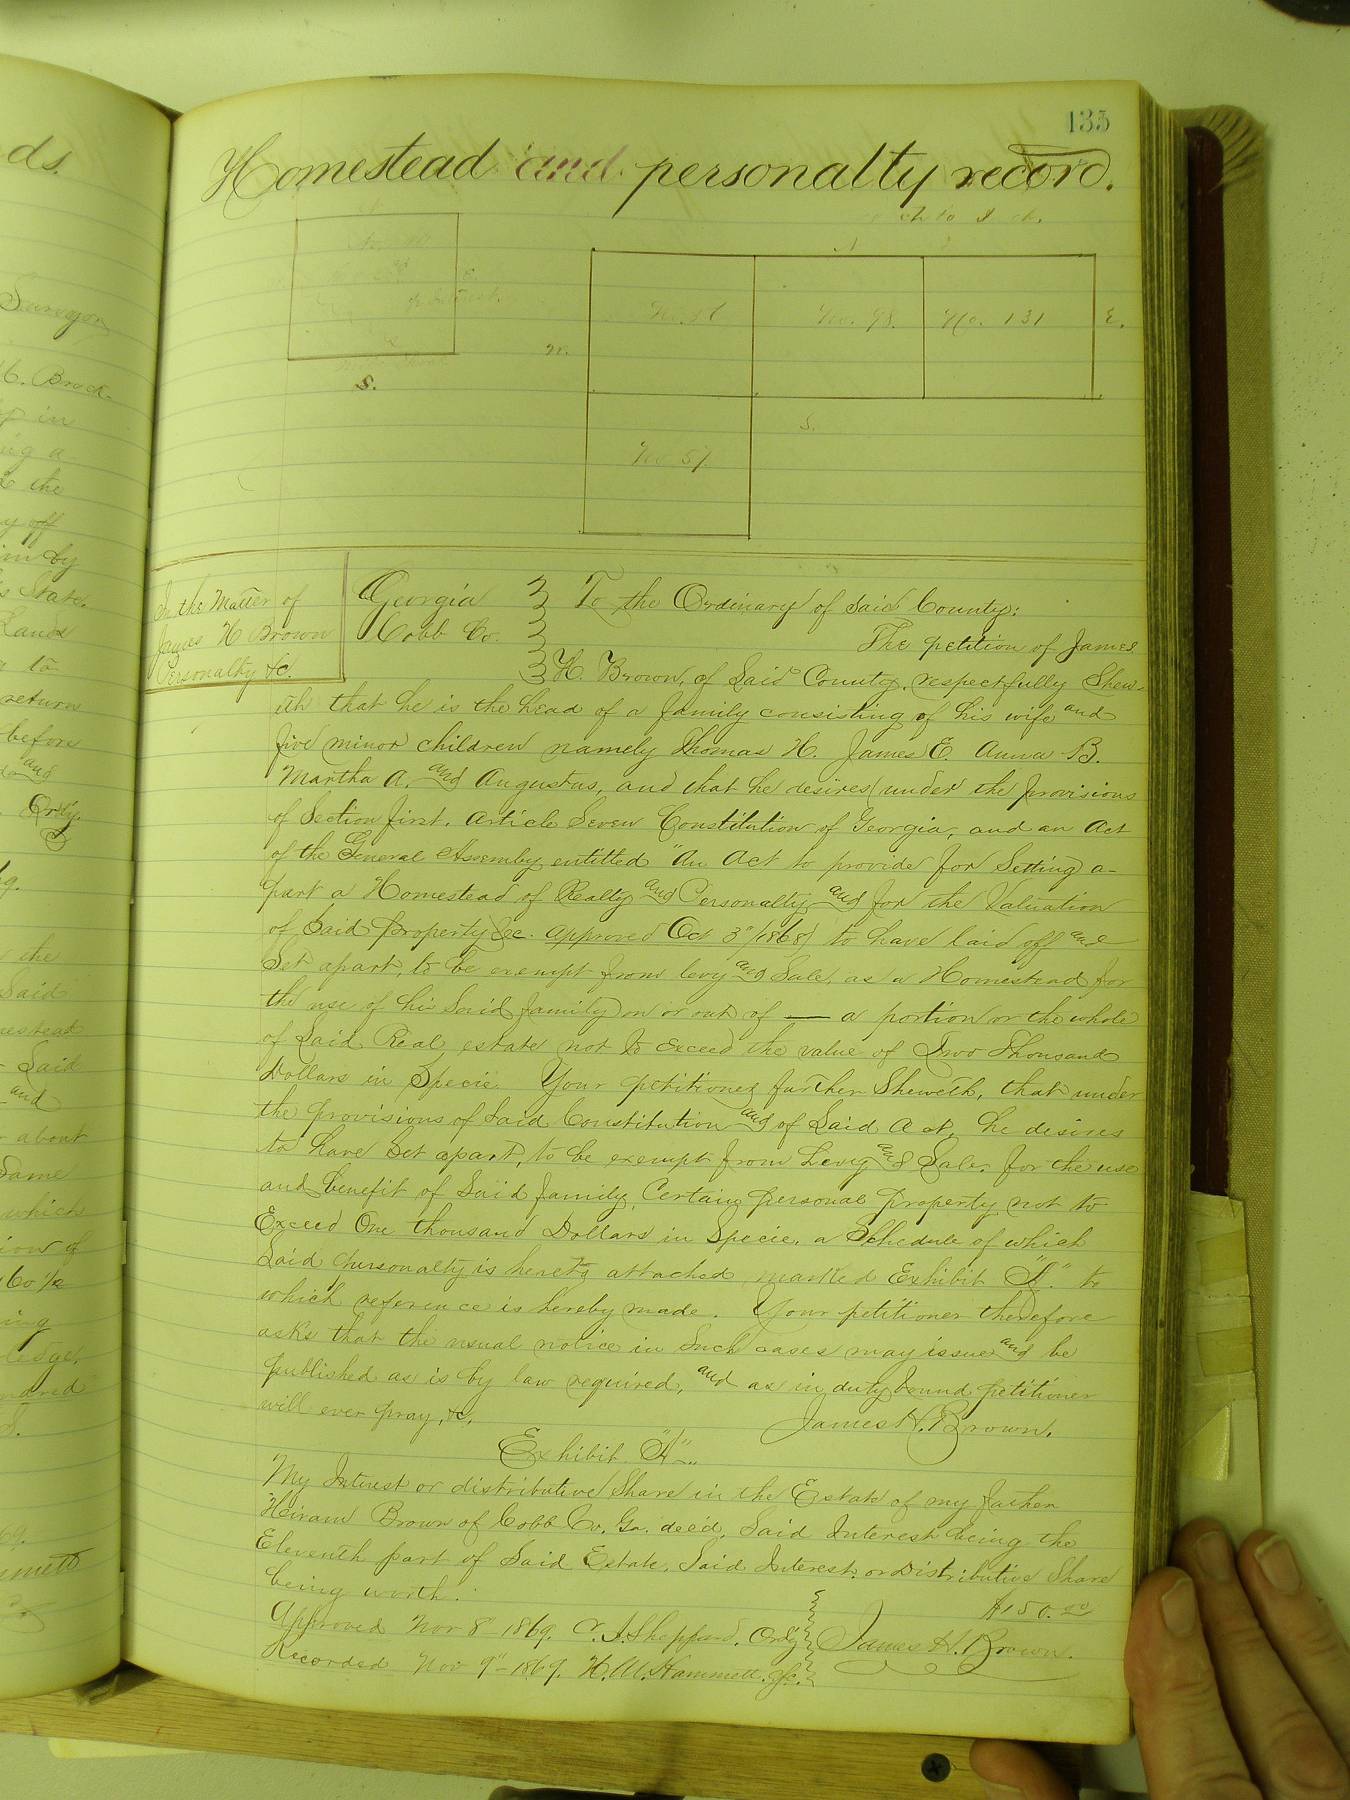 135
Homestead and personalty record.
S.
No. 98.
No. 131
E.
S.
No 57
In the Matter of
James H Brown
Personalty &c.
Georgia
Cobb Co.
To the Ordinary of Said County:
The petition of James
H. Brown, of Said County, respectfully Shew-
eth that he is the head of a family consisting of his wife and
five minor children namely Thomas H. James E. Anna B.
Martha A. and Augustus, and that he desires (under the provisions
of Section first. Article Seven Constitution of Georgia, and an Act
of the General Assembly entitled "An Act to provide for Setting a-
part a Homestead of Realty and Personalty and for the Valuation
of Said property &c. approved Oct 3" 1868) to have laid off and
Set apart, to be exempt from levy and Sale, as a Homestead for
the use of his Said family on or out of — a portion or the whole
of Said Real estate not to Exceed the value of Two Thousand
Dollars in Specie Your petitioner further Sheweth, that under
the provisions of Said Constitution and of Said Act, he desires
to have Set apart, to be exempt from Levy and Sale, for the use
and benefit of Said family, Certain personal property not to
Exceed One thousand Dollars in Specie, a Schedule of which
Said personalty is hereto attached marked Exhibit "A." to
which reference is hereby made. Your petitioner therefore
asks that the usual notice in Such cases may issue and be
published as is by law required, and as in duty bound petitioner
will ever pray, &c.
James H. Brown.
Exhibit "A"
My Interest or distributive Share in the Estate of my father
Heiram Brown of Cobb Co. Ga. dec'd, Said Interest being the
Eleventh part of Said Estate, Said Interest or Distributive Share
being worth.
$150.00
Approved Nov 8" 1869. Ordy
James H. Brown.
Recorded Nov 9" 1869. H. M. Hammett.